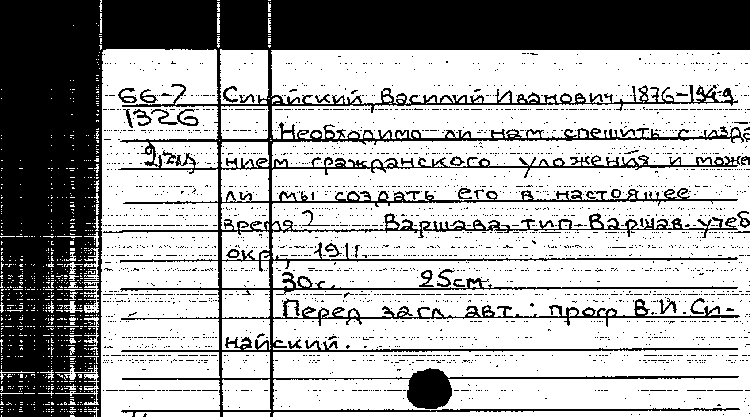 66-7 Синайский, Василий Иванович, 1876-1949
1326
Необходимо ли нам спешить с изда
нием гражданского уложения и може
ли мы создать его в настоящее
время? Варшава, тип. Варшав. учеб
окр., 1911.
30с. 25см.
Перед загл. авт.: проф В.И.Си-
найский.